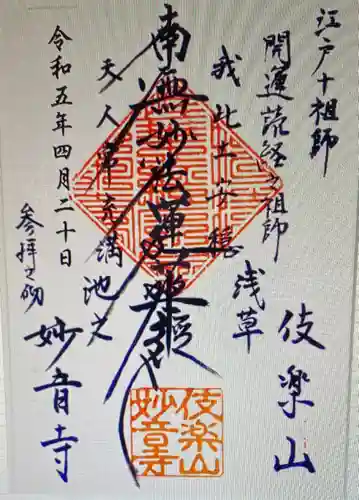 江戸十祖師
開運読経之祖師
浅草
伎楽山
我此土安穏
南無妙法蓮華経
天人常充満
令和五年四月二十日
参拝之砌
妙音寺
伎楽山
妙音寺